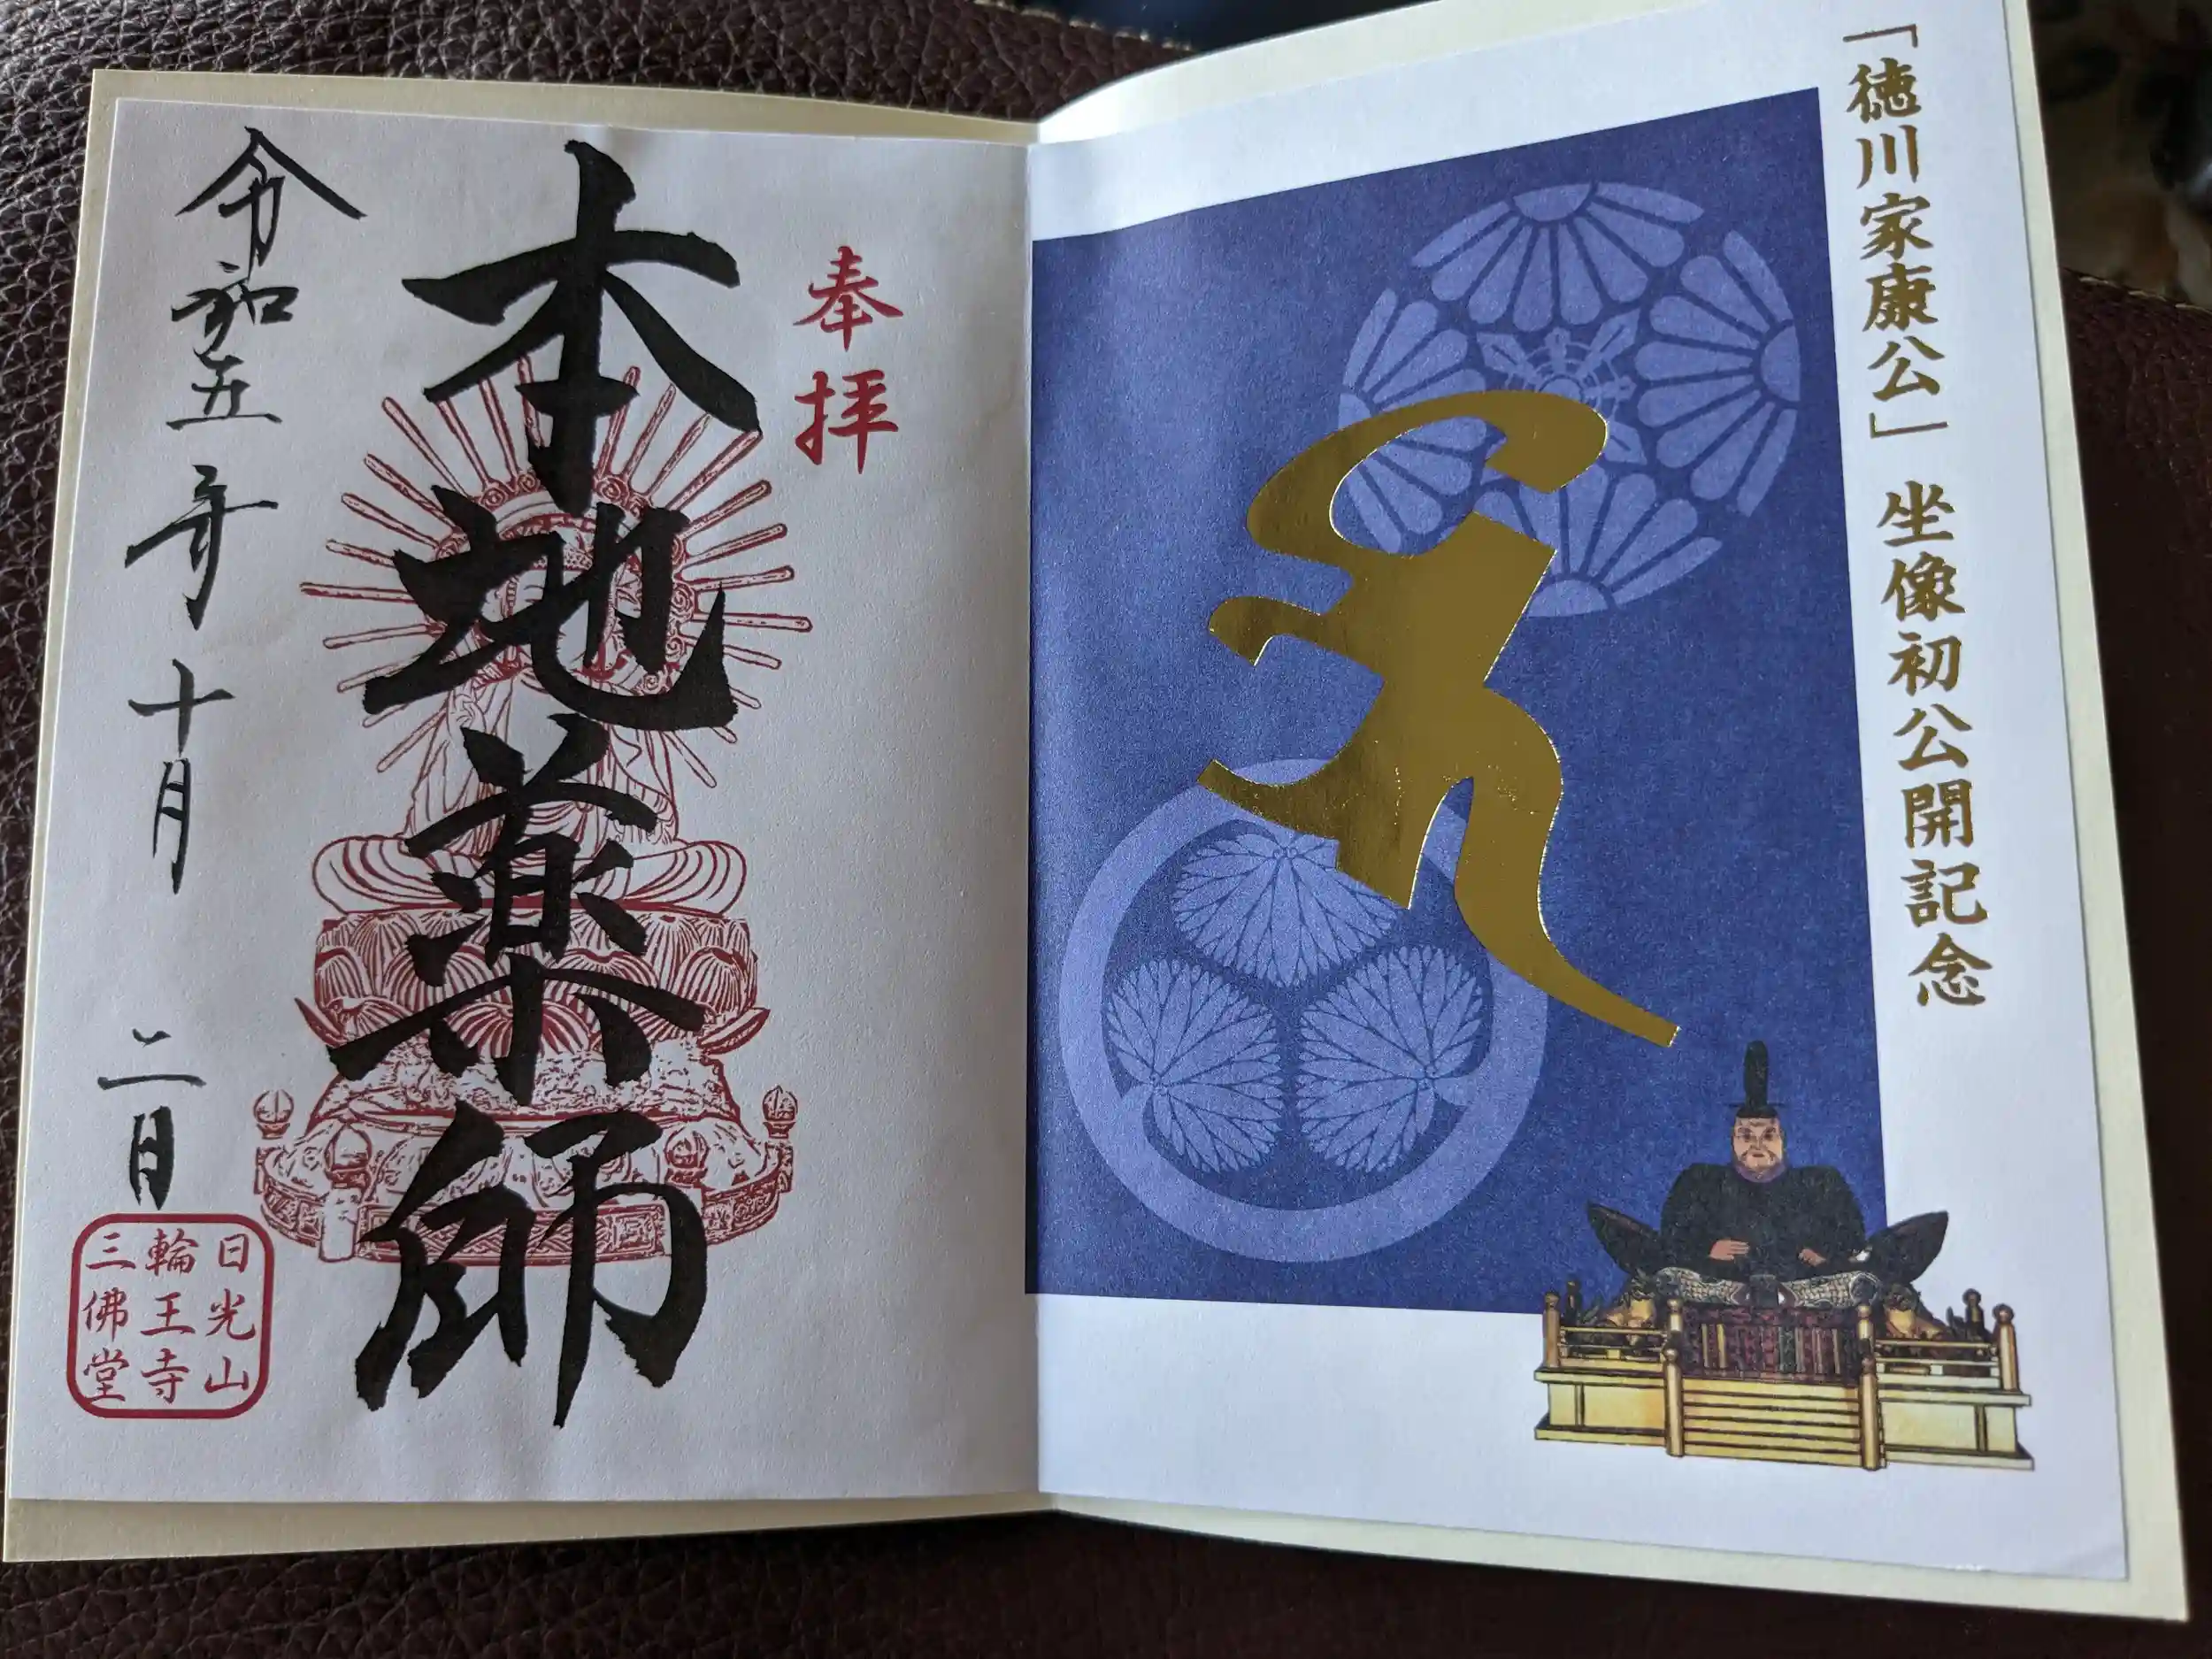 「徳川家康公」坐像初公開記念
奉拝
本地薬師
令和五年十月二日
日光山
輪王寺
三佛堂